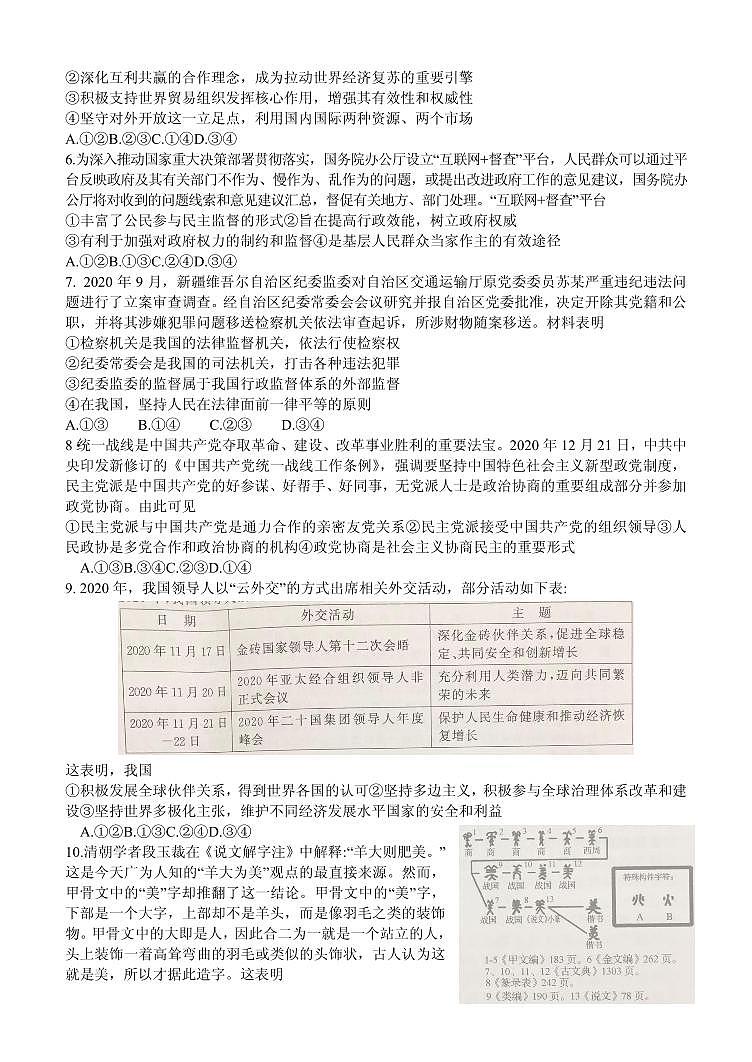 ②深化互利共赢的合作理念，成为拉动世界经济复苏的重要引擎
③积极支持世界贸易组织发挥核心作用，增强其有效性和权威性
④坚守对外开放这一立足点，利用国内国际两种资源、两个市场
A.①②B.②③C.①④D.③④
6.为深入推动国家重大决策部署贯彻落实，国务院办公厅设立“互联网+督查”平台，人民群众可以通过平
台反映政府及其有关部门不作为、慢作为、乱作为的问题，或提出改进政府工作的意见建议，国务院办
公厅将对收到的问题线索和意见建议汇总，督促有关地方、部门处理。“互联网+督查”平台
①丰富了公民参与民主监督的形式②旨在提高行政效能，树立政府权威
③有利于加强对政府权力的制约和监督④是基层人民群众当家作主的有效途径
A.①②B.①③C.②④D.③④
7. 2020 年 9 月，新疆维吾尔自治区纪委监委对自治区交通运输厅原党委委员苏某严重违纪违法问
题进行了立案审查调查。经自治区纪委常委会会议研究并报自治区党委批准，决定开除其党籍和公
职，并将其涉嫌犯罪问题移送检察机关依法审查起诉，所涉财物随案移送。材料表明
①检察机关是我国的法律监督机关，依法行使检察权
②纪委常委会是我国的司法机关，打击各种违法犯罪
③纪委监委的监督属于我国行政监督体系的外部监督
④在我国，坚持人民在法律面前一律平等的原则
A.①③ B.①④ C.②③ D.③④
8 统一战线是中国共产党夺取革命、建设、改革事业胜利的重要法宝。2020 年 12 月 21 日，中共中
央印发新修订的《中国共产党统一战线工作条例》，强调要坚持中国特色社会主义新型政党制度，
民主党派是中国共产党的好参谋、好帮手、好同事，无党派人士是政治协商的重要组成部分并参加
政党协商。由此可见
①民主党派与中国共产党是通力合作的亲密友党关系②民主党派接受中国共产党的组织领导③人
民政协是多党合作和政治协商的机构④政党协商是社会主义协商民主的重要形式
A.①③B.③④C.②③D.①④
9. 2020 年，我国领导人以“云外交”的方式出席相关外交活动，部分活动如下表:
日 期 外交活动 主 题
2020 年 11 月 17 日 金砖国家领导人第十二次会晤 深化金砖伙伴关系,促进全球稳
定、共同安全和创新增长
2020 年 11 月 20 日 2020 年亚太经合组织领导人非
正式会议 充分利用人类潜力,迈向共同繁
荣的未来
2020 年 11 月 21 日
—22 日 2020 年二十国集团领导人年度
峰会 保护人民生命健康和推动经济恢
复增长
这表明，我国
①积极发展全球伙伴关系，得到世界各国的认可②坚持多边主义，积极参与全球治理体系改革和建
设③坚持世界多极化主张，维护不同经济发展水平国家的安全和利益
A.①②B.①③C.②④D.③④
10.清朝学者段玉裁在《说文解字注》中解释:“羊大则肥美。”
这是今天广为人知的“羊大为美”观点的最直接来源。然而，
甲骨文中的“美”字却推翻了这一结论。甲骨文中的“美”字，
下部是一个大字，上部却不是羊头，而是像羽毛之类的装饰
物。甲骨文中的大即是人，因此合二为一就是一个站立的人，
头上装饰一着高耸弯曲的羽毛或类似的头饰状，古人认为这
就是美，所以才据此造字。这表明
1 2 3 4 5 6
商 商 商 商 商 西周
9 10 11 12
战国 战国 战国 战国
7 8 13
战国 战国 (说文)小篆 楷书
美
楷书
特殊构件字符:
A B
1-5《甲文编》183 页。6《金文编》262 页。
7、10、11、12《古文典》1303 页。
8《篆录表》242 页。
9《类编》190 页。13《说文》78 页。